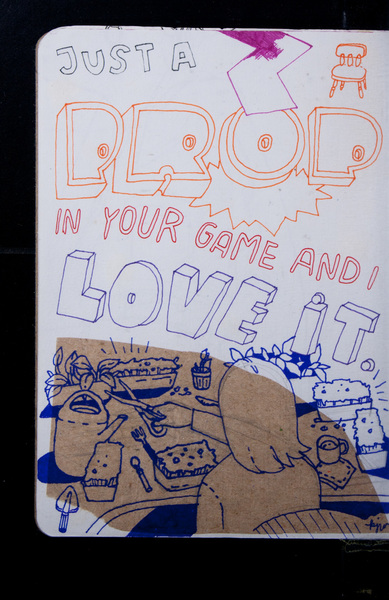 JUST A
PROP
IN YOUR GAME AND I
LOVE iT.